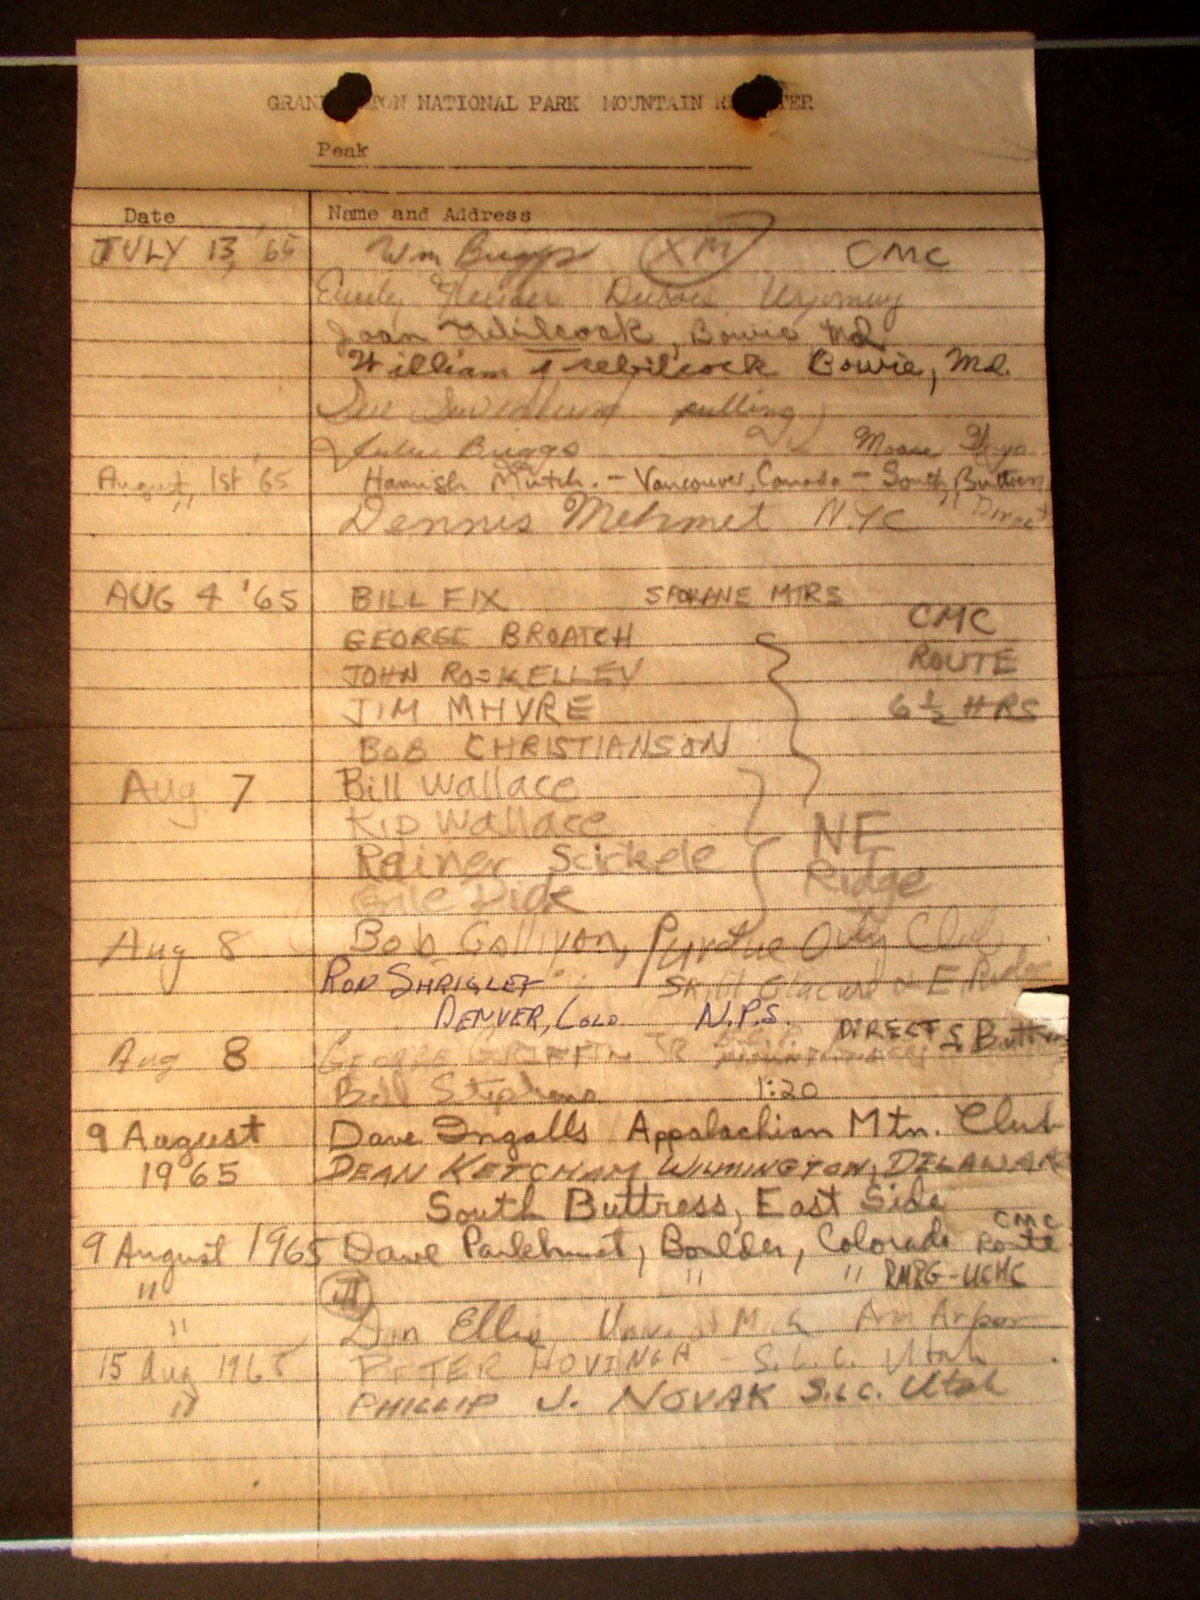 GRAND TETON NATIONAL PARK MOUNTAIN REGISTER
Peak
Date Name and Address
JULY 13, '65 Wm Briggs XM CMC
Dubois Wyoming
Joan Trebilcock, Bowie Md
William Trebilcock Bowie, Md.
pulling
Julie Briggs Moose Wyo
August, 1st '65 Hamish Mutch. - Vancouver, Canada - South Buttress
" Dennis Mehmet N.Y.C " Direct
AUG 4 '65 BILL FIX SPOKANE MTRS
GEORGE BROATCH CMC
JOHN ROSKELLEY ROUTE
JIM MHYRE 6 1/2 HRS
BOB CHRISTIANSON
Aug 7 Bill Wallace
Kip Wallace NE
Rainer Schickele Ridge
Gale Dick
Aug 8 Bob Gallivon, Purdue Outing Club
RON SHRIGLEY Skillet Glacier E Ridge
DENVER, COLO N.P.S. DIRECT S Buttress
Aug 8 GEORGE GRIFFIN JR
Bill Stephens 1:20
9 August Dave Ingalls Appalachian Mtn. Club
1965 DEAN KETCHAM WILMINGTON, DELAWARE
South Buttress, East Side
9 August 1965 Dave Parkhurst, Boulder, Colorado CMC Route
" III " " RMRG-UCHC
" Ellis Ann Arbor
15 Aug 1965 PETER HOVINGA - S.L.C. Utah
" PHILLIP J. NOVAK S.L.C. Utah